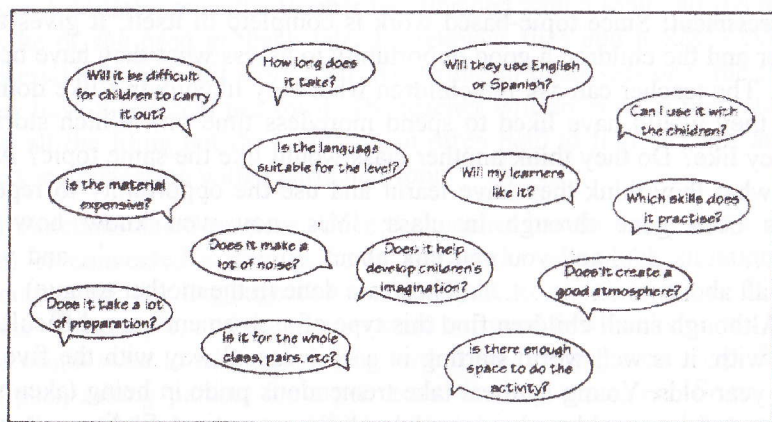 Will it be difficult
for children to carry
it out?
How long does
it take?
Will they use English
or Spanish?
Can I use it with
the children?
Is the language
suitable for the level?
Is the material
expensive?
Will my learners
like it?
Which skills does
it practise?
Does it make a
lot of noise?
Does it help
develop children's
imagination?
Does it create a
good atmosphere?
Does it take a lot
of preparation?
Is it for the whole
class, pairs, etc?
Is there enough
space to do the
activity?